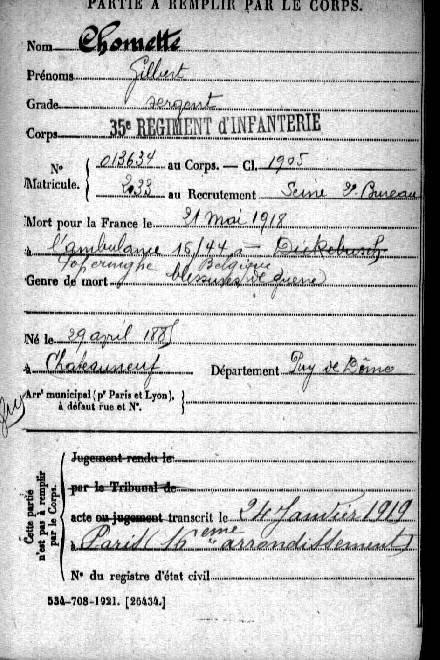 PARTIE À REMPLIR PAR LE CORPS.
Nom Chomette
Prénoms Gilbert
Grade sergent
Corps 35e REGIMENT d'INFANTERIE
N° Matricule. { 013634 au Corps. — Cl. 1905
233 au Recrutement Seine 2e Bureau
Mort pour la France le 21 mai 1918
à l'ambulance 16/44 à Dickebusch
Poperinghe Belgique
Genre de mort blessures de guerre
Né le 29 avril 1885
à Chateauneuf Département Puy de Dôme
Arr' municipal (p' Paris et Lyon), à défaut rue et N°. }
Cette partie n'est pas à remplir par le Corps. {
Jugement rendu le
par le Tribunal de
acte ou jugement transcrit le 24 Janvier 1919
à Paris (16eme arrondissement)
N° du registre d'état civil
534-708-1921. [26434.]